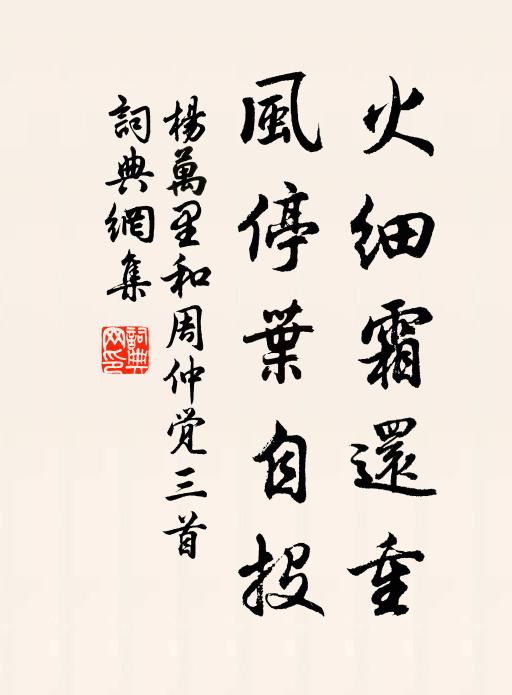 火細霜還重
風停葉自投
楊萬里和周仲觉三首
詞典網集
詞典網印